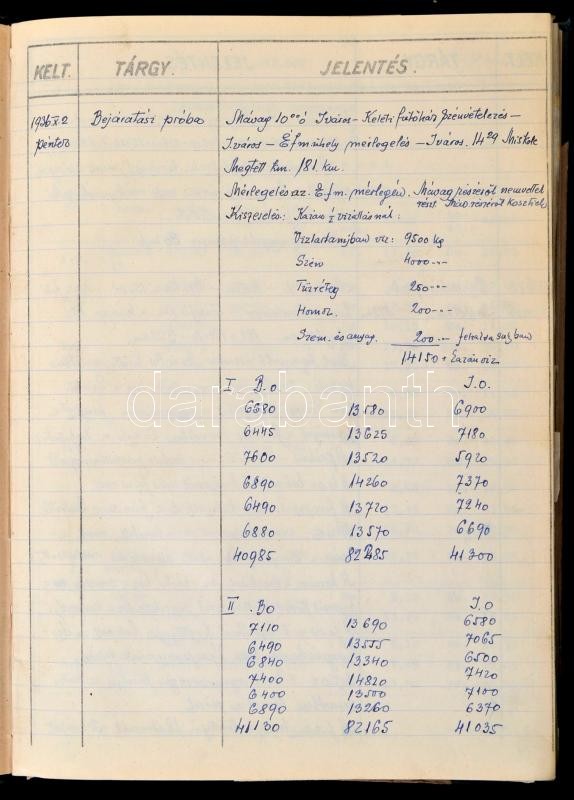 KELT. TÁRGY. JELENTÉS.
1936 X. 2 Bejáratási próba Mávag 10°°ó Iváros - Keleti fűtőház szénvételezés -
péntek Iváros - É.f. műhely mérlegelés - Iváros. 14²⁹
Megtett km. 181. km.
Mérlegelés az É.f.m. mérlegén. Mávag részéről nem vettek
részt. Máv. részéről
Kiszerelés: Kazán ½ vízállásnál:
Víztartányban víz: 9500 kg
Szén 4000 -"-
Tűzréteg 250 -"-
Homok 200 -"-
Szem. és anyag. 200 -"-
14150 + kazánvíz
I B.o J.o.
6680 13580 6900
6445 13625 7180
7600 13520 5920
6890 14260 7370
6490 13720 7240
6880 13570 6690
40985 82285 41300
darabanth
II .Bo J.o
7110 13690 6580
6490 13555 7065
6840 13340 6500
7400 14820 7420
6400 13500 7100
6890 13260 6370
41130 82165 41035